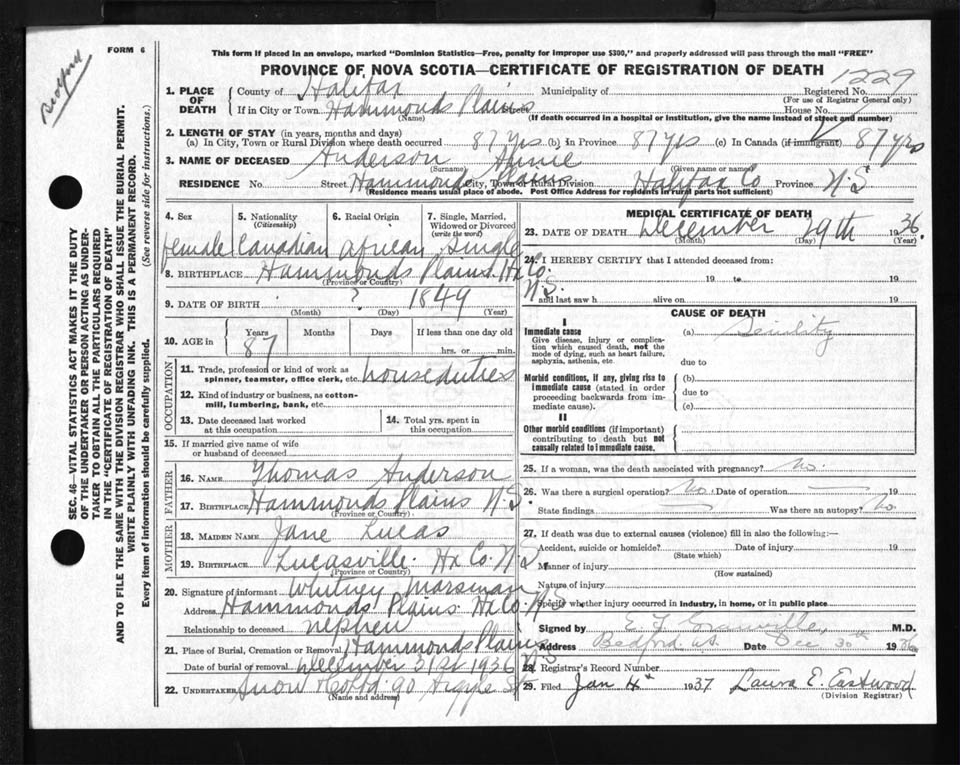 Bedford
FORM 6
This form if placed in an envelope, marked "Dominion Statistics—Free, penalty for improper use $300," and properly addressed will pass through the mail "FREE"
PROVINCE OF NOVA SCOTIA—CERTIFICATE OF REGISTRATION OF DEATH
1229
1. PLACE OF DEATH
County of Halifax Municipality of Registered No.
(For use of Registrar General only)
If in City or Town Hammonds Plains Street House No.
(Name) (If death occurred in a hospital or institution, give the name instead of street and number)
2. LENGTH OF STAY (in years, months and days)
(a) In City, Town or Rural Division where death occurred 87 yrs (b) In Province 87 yrs (c) In Canada (if immigrant) 87 yrs
3. NAME OF DECEASED Anderson Annie
(Surname) (Given name or names)
RESIDENCE No. Street Hammonds Plains City, Town or Rural Division Halifax Co Province N.S
(Residence means usual place of abode. Post Office Address for residents in rural parts not sufficient)
4. Sex 5. Nationality (Citizenship) 6. Racial Origin 7. Single, Married, Widowed or Divorced (write the word)
female Canadian African Single
8. BIRTHPLACE Hammonds Plains. Hx Co. N.S.
(Province or Country)
9. DATE OF BIRTH ? 1849
(Month) (Day) (Year)
10. AGE in Years Months Days If less than one day old
87 hrs. or min.
OCCUPATION
11. Trade, profession or kind of work as spinner, teamster, office clerk, etc. house duties
12. Kind of industry or business, as cotton-mill, lumbering, bank, etc.
13. Date deceased last worked at this occupation
14. Total yrs. spent in this occupation
15. If married give name of wife or husband of deceased
FATHER
16. NAME Thomas Anderson
17. BIRTHPLACE Hammonds Plains N.S.
(Province or Country)
MOTHER
18. MAIDEN NAME Jane Lucas
19. BIRTHPLACE Lucasville. Hx Co. N.S.
(Province or Country)
20. Signature of informant Whitney Marsman
Address Hammonds Plains. Hx Co. N.S.
Relationship to deceased nephew
21. Place of Burial, Cremation or Removal Hammonds Plains N.S
Date of burial or removal December 31st 1936
22. UNDERTAKER Snow & Co Ltd 90 Argyle St
(Name and address)
MEDICAL CERTIFICATE OF DEATH
23. DATE OF DEATH December 29th 1936.
(Month) (Day) (Year)
24. I HEREBY CERTIFY that I attended deceased from:
19 to 19
and last saw h alive on 19
CAUSE OF DEATH
I
Immediate cause (a) Senility
Give disease, injury or complication which caused death, not the mode of dying, such as heart failure, asphyxia, asthenia, etc.
due to
Morbid conditions, if any, giving rise to immediate cause (stated in order proceeding backwards from immediate cause).
(b)
due to
(c)
II
Other morbid conditions (if important) contributing to death but not causally related to immediate cause.
25. If a woman, was the death associated with pregnancy? No.
26. Was there a surgical operation? No. Date of operation 19
State findings Was there an autopsy? No.
27. If death was due to external causes (violence) fill in also the following:—
Accident, suicide or homicide? Date of injury 19
(State which)
Manner of injury
(How sustained)
Nature of injury
Specify whether injury occurred in industry, in home, or in public place
Signed by M.D.
Address Bedford Date Dec 30th 1936
28. Registrar's Record Number
29. Filed Jan 4th 1937 Laura E. Eastwood
(Division Registrar)
SEC. 46—VITAL STATISTICS ACT MAKES IT THE DUTY
OF THE UNDERTAKER OR PERSON ACTING AS UNDER-
TAKER TO OBTAIN ALL THE PARTICULARS REQUIRED
IN THE "CERTIFICATE OF REGISTRATION OF DEATH"
AND TO FILE THE SAME WITH THE DIVISION REGISTRAR WHO SHALL ISSUE THE BURIAL PERMIT.
WRITE PLAINLY WITH UNFADING INK. THIS IS A PERMANENT RECORD.
Every item of information should be carefully supplied. (See reverse side for instructions.)